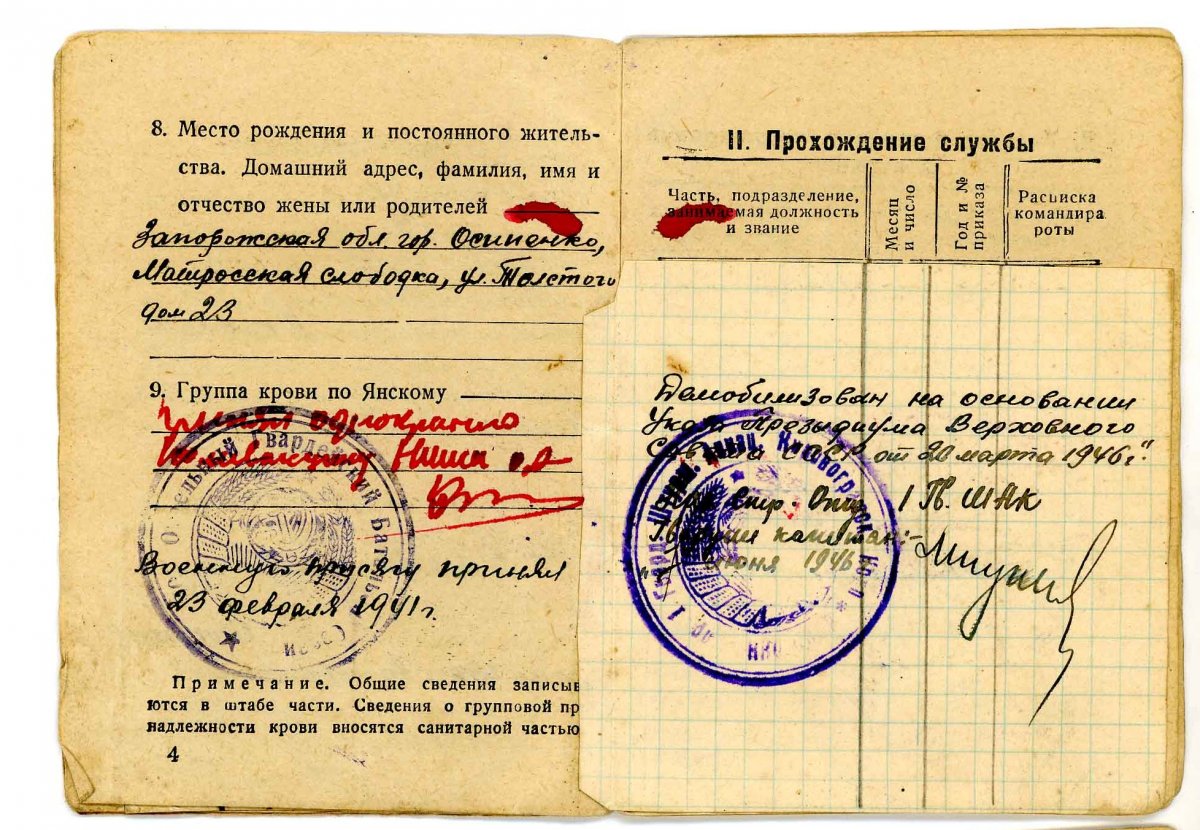 8. Место рождения и постоянного житель-
ства. Домашний адрес, фамилия, имя и
отчество жены или родителей
Запорожская обл. гор. Осипенко,
Матросская слободка, ул. Толстого
дом 23
9. Группа крови по Янскому
однократно
Военную присягу принял
23 февраля 1941 г.
Примечание. Общие сведения записыв
ются в штабе части. Сведения о групповой пр
надлежности крови вносятся санитарной частью
4
II. Прохождение службы
Часть, подразделение,
занимаемая должность
и звание
Месяц
и число
Год и №
приказа
Расписка
командира
роты
Демобилизован на основании
Указа Президиума Верховного
Совета СССР от 20 марта 1946 г."
Стр. 1 Гв. ШАК
Гвардии капитан:-
июня 1946 г.
Гвардейский Батальон Связи